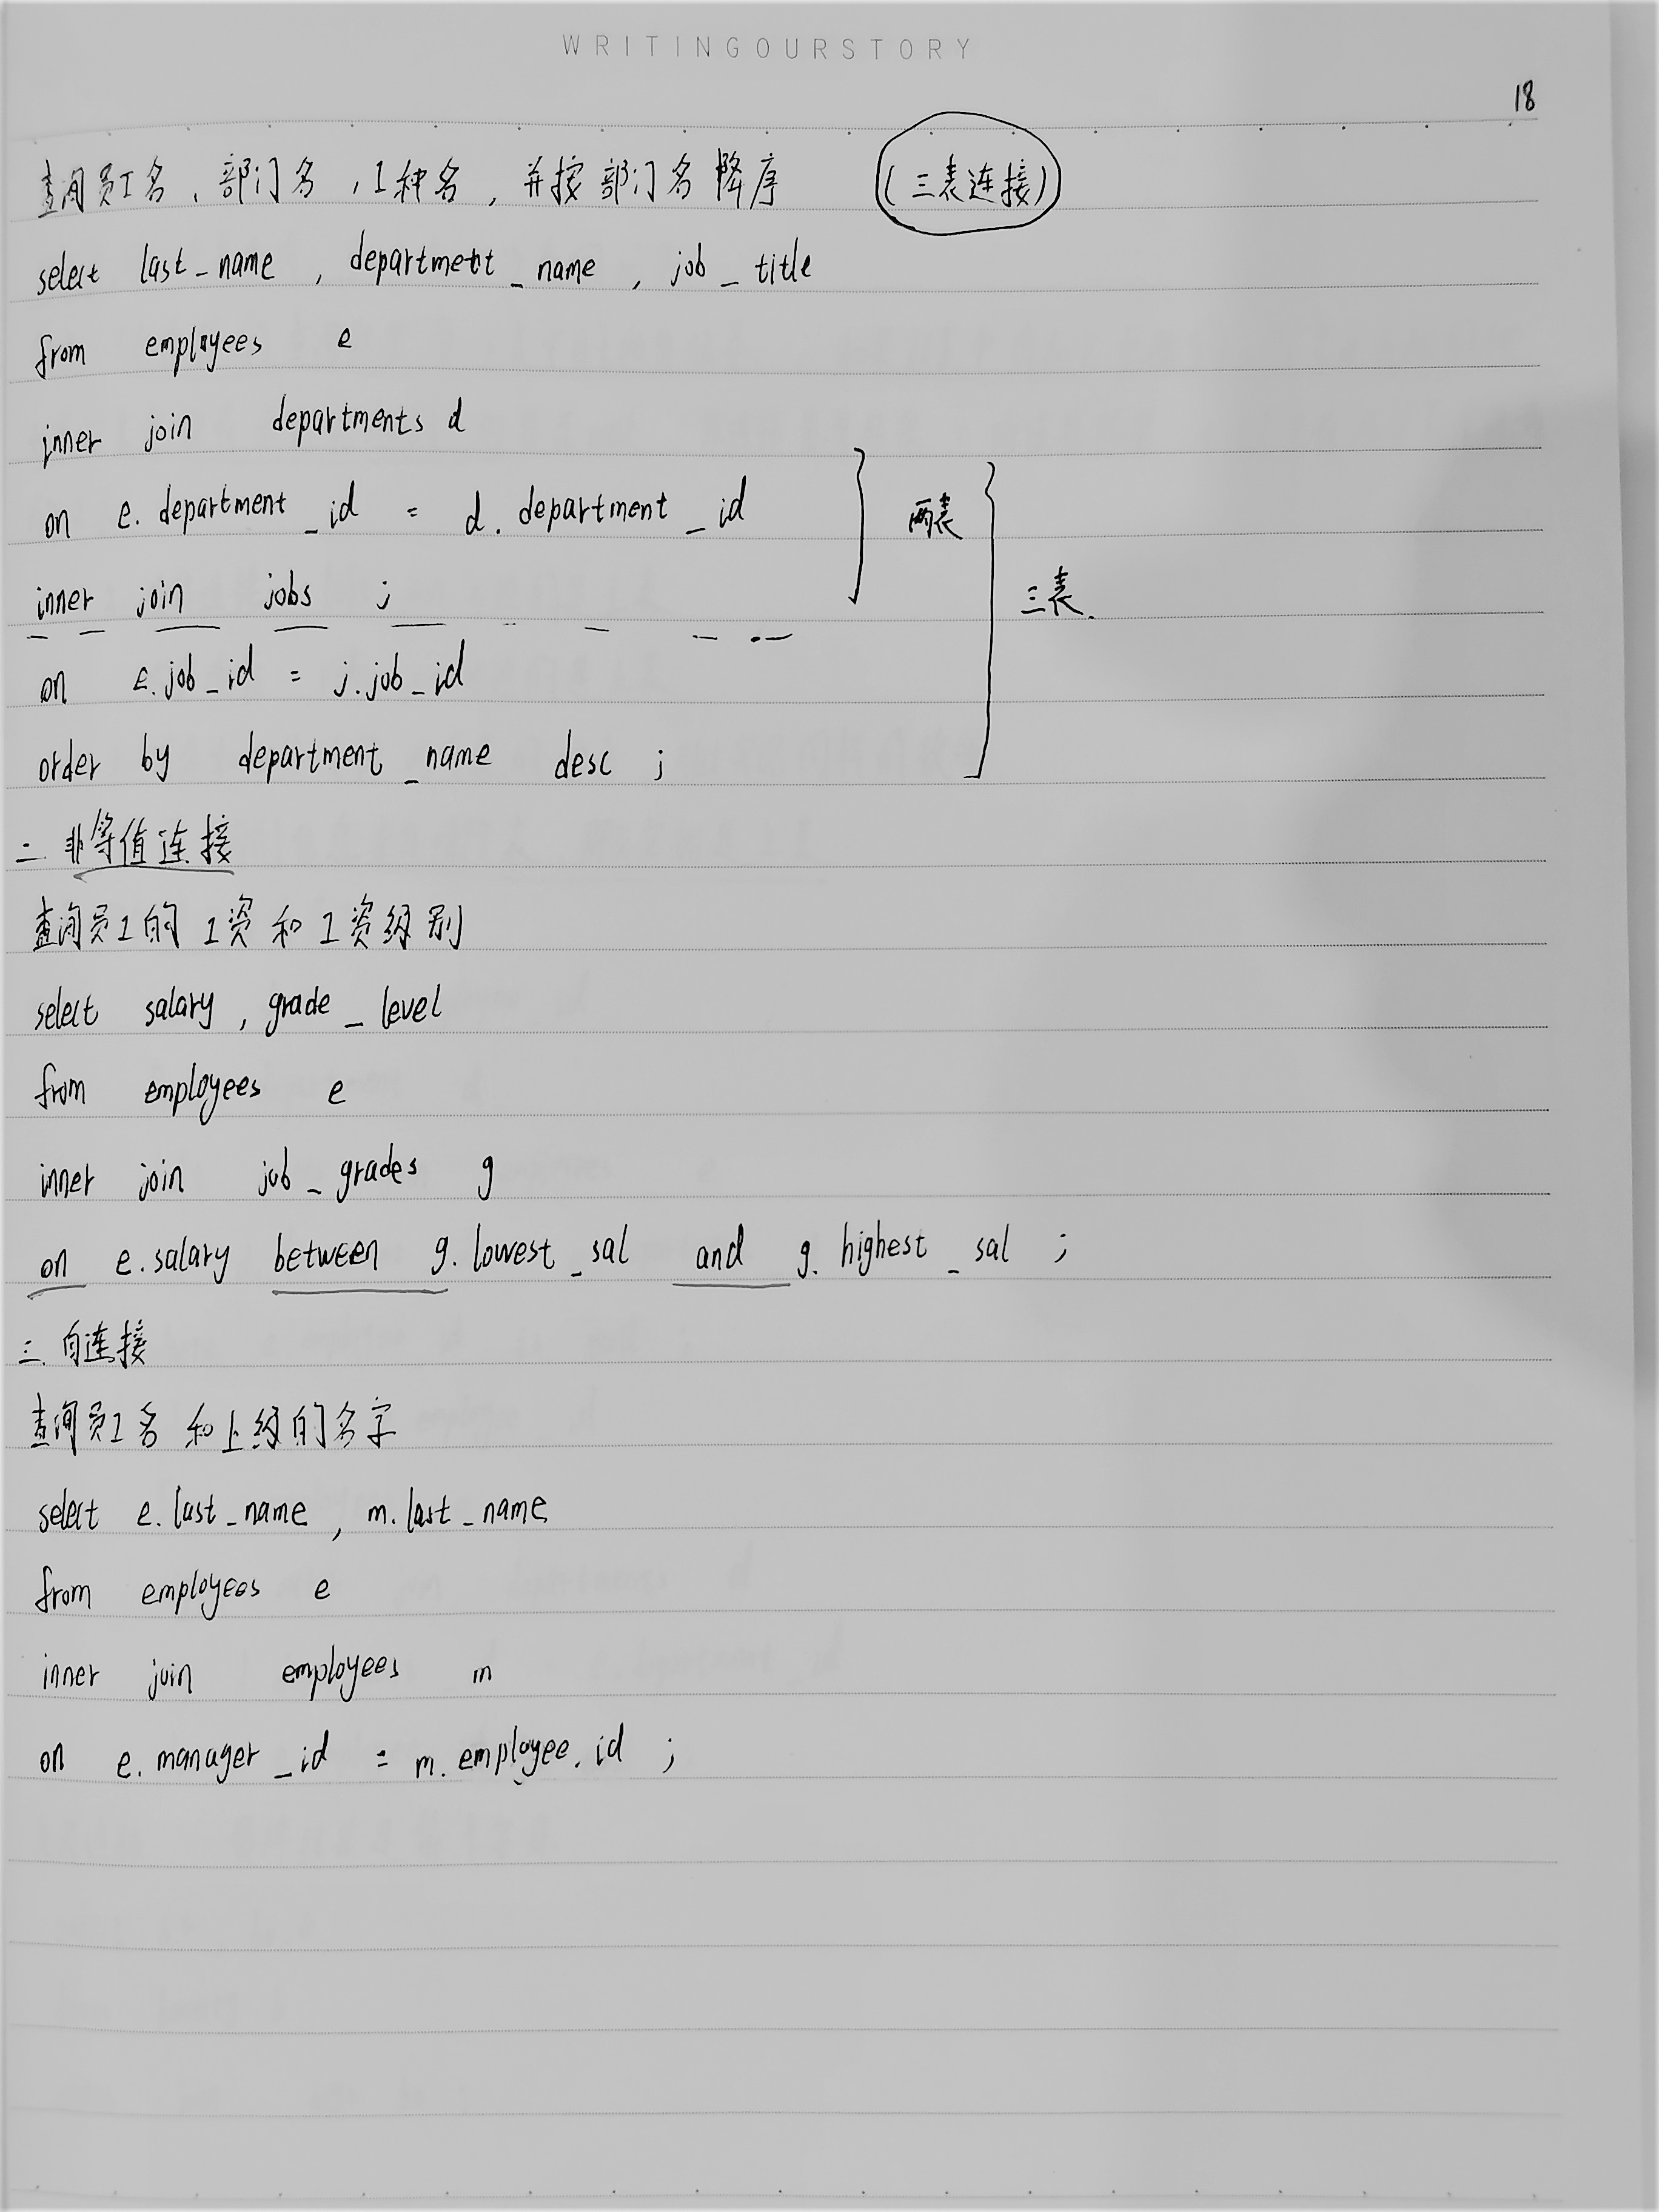 WRITINGOURSTORY
18
查询员工名、部门名,工种名,并按部门名降序 (三表连接)
select last_name , department_name , job_title
from employees e
inner join departments d
on e.department_id = d.department_id
两表
inner join jobs j
三表.
on e.job_id = j.job_id
order by department_name desc ;
二 非等值连接
查询员工的工资和工资级别
select salary , grade_level
from employees e
inner join job_grades g
on e.salary between g.lowest_sal and g.highest_sal ;
三. 自连接
查询员工名和上级的名字
select e.last_name , m.last_name
from employees e
inner join employees m
on e.manager_id = m.employee.id ;